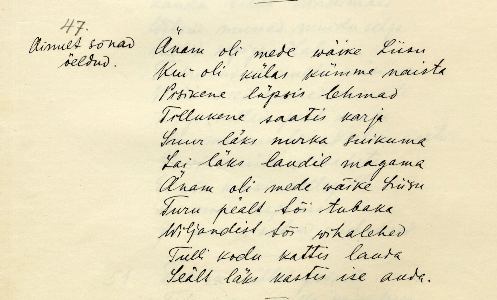 47.
Ainult sõnad
öeldud.
Änam oli mede wäike Liisu
Kui oli külas kümme naista
Prisikene lüpsis lehmad
Tollukene saatis karja
Suur läks nurka suikuma
Lai läks laudil magama
Änam oli mede wäike Liisu
Turu pealt tõi tubaka
Wiljandist tõi wihalehed
Tulli kodu kattis lauda
Sealt läks kastis ise auda.